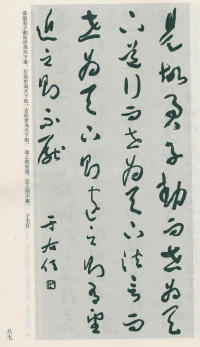 是故君子動而世為天
下道行而世為天下法言而
世為天下則遠之則有望
近之則不厭 于右任
是故君子動而世為天下道，行而世為天下法，言而世為天下則。遠之則有望，近之則不厭。 于右任
八七